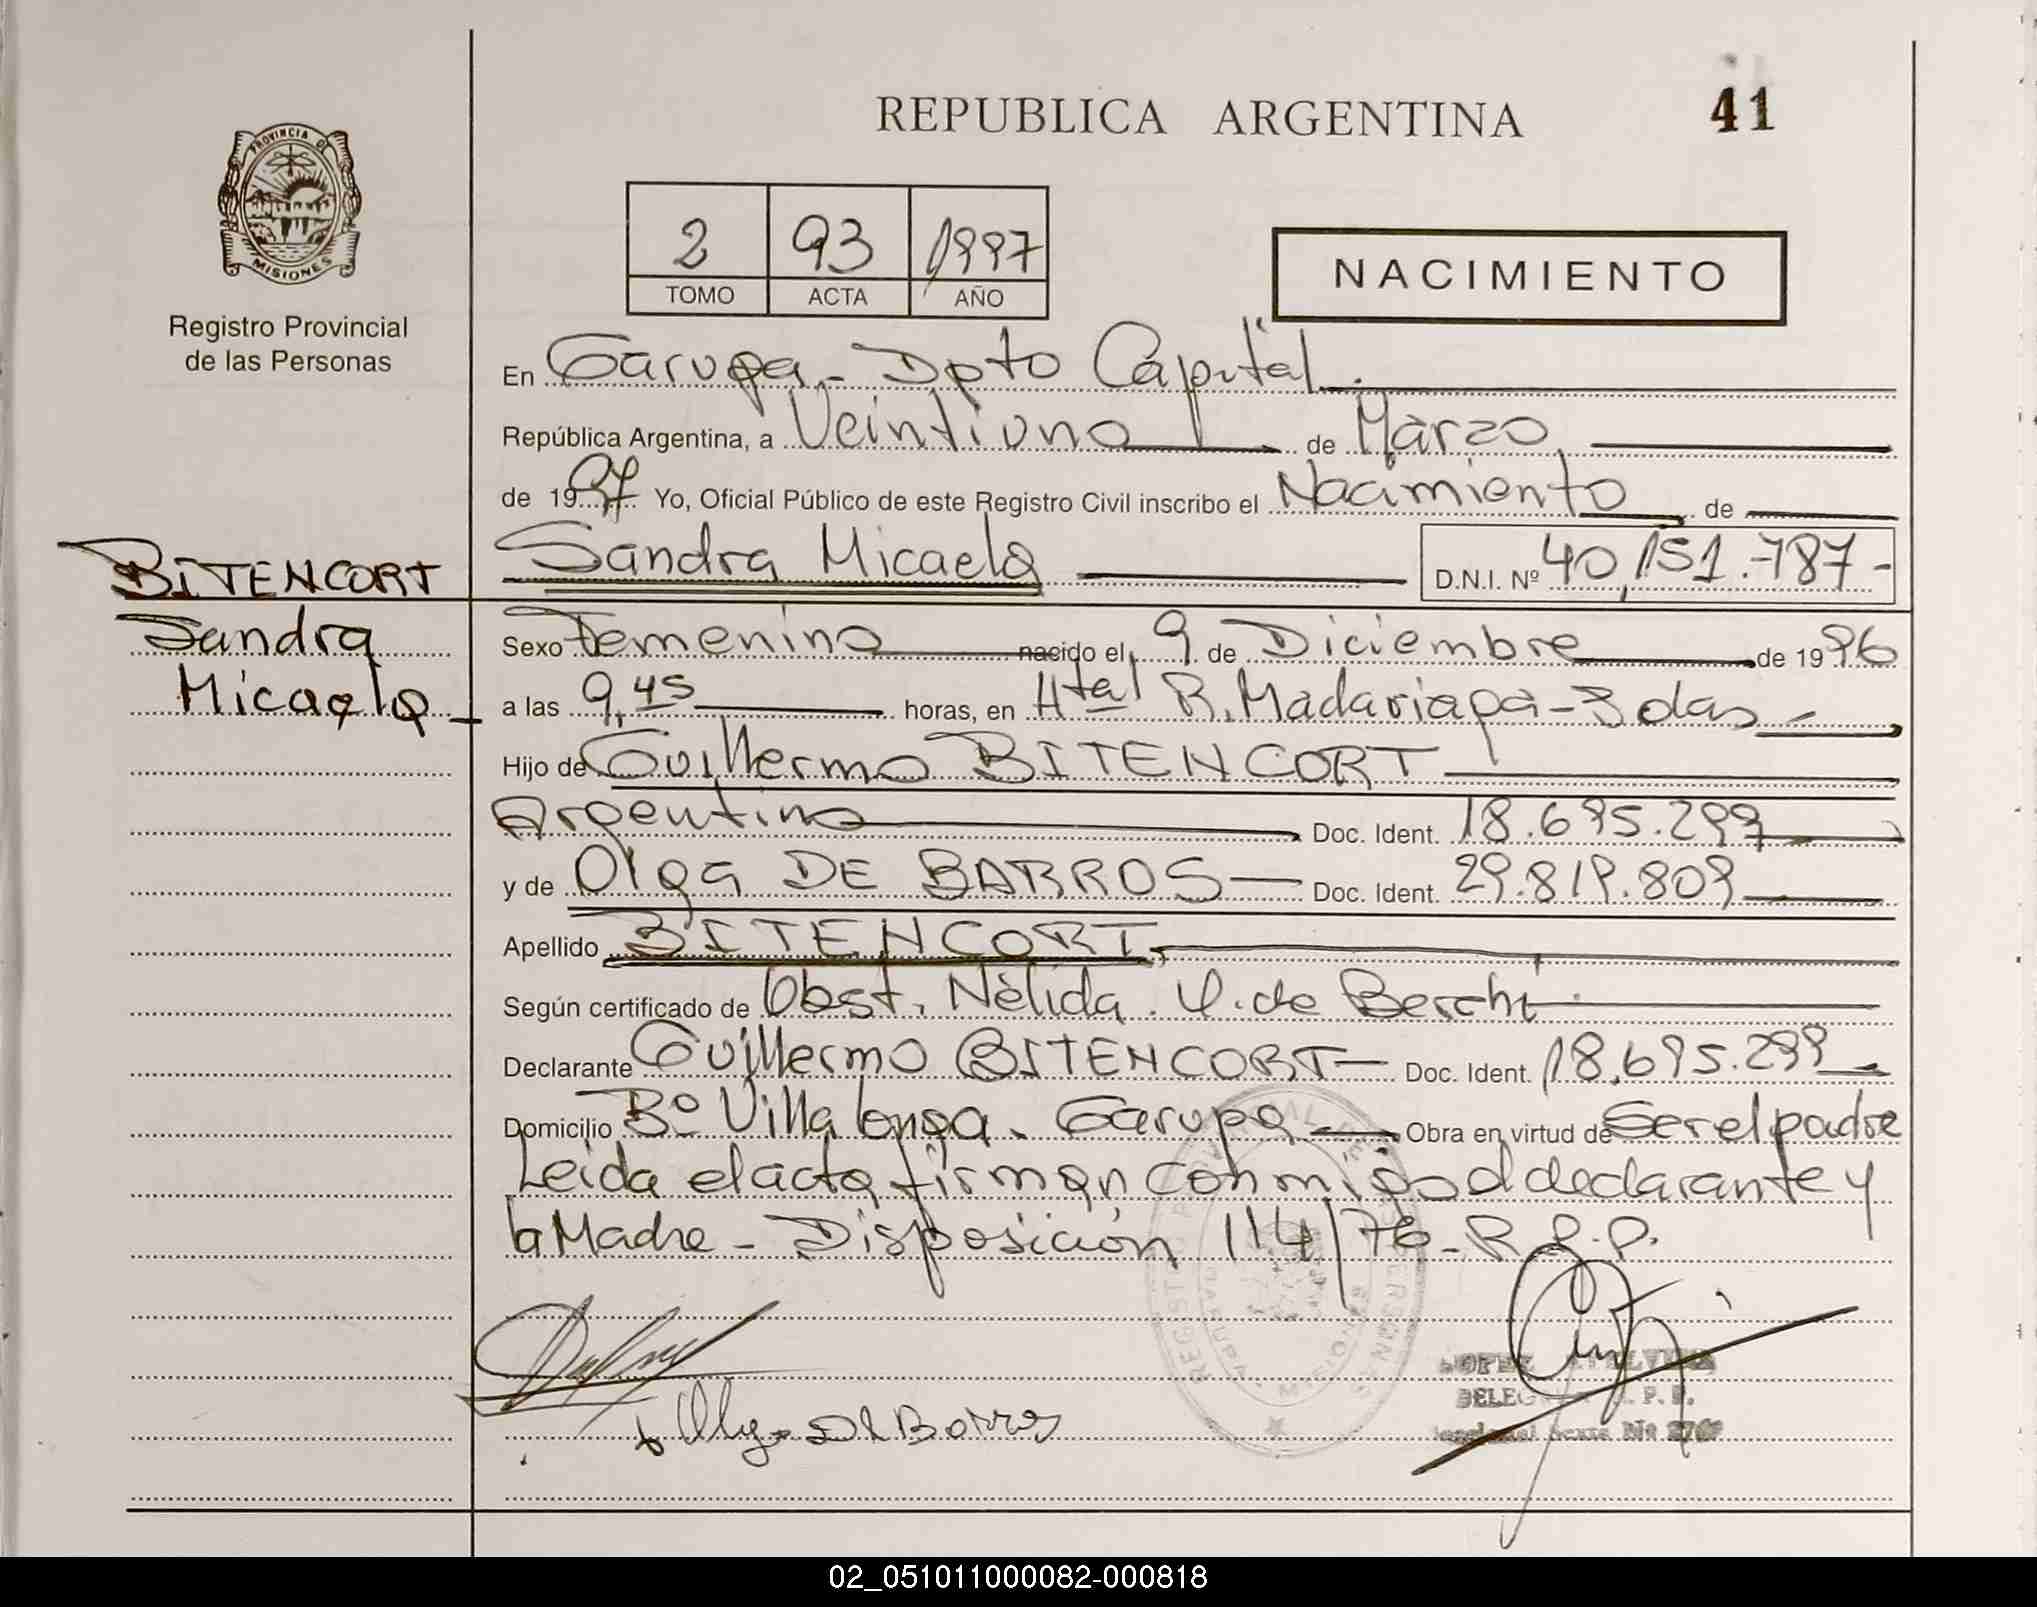 REPUBLICA ARGENTINA
41
PROVINCIA DE
MISIONES
Registro Provincial
de las Personas
2 93 1997
TOMO ACTA AÑO
NACIMIENTO
En Garupa - Dpto Capital.
República Argentina, a Veintiuno de Marzo
de 1997 Yo, Oficial Público de este Registro Civil inscribo el Nacimiento de
BITENCORT
Sandra
Micaela
Sandra Micaela D.N.I. Nº 40,151.787-
Sexo Femenino nacido el 9 de Diciembre de 1996
a las 9,45 horas, en Htal R. Madariaga - Sdas -
Hijo de Guillermo BITENCORT
Argentino Doc. Ident. 18.695.299
y de Olga DE BARROS Doc. Ident. 29.819.809
Apellido BITENCORT
Según certificado de Obst. Nélida . de Berchi
Declarante Guillermo BITENCORT Doc. Ident. 18.695.299
Domicilio Bº Villa longa - Garupa Obra en virtud de Ser el padre
Leida el acta firman conmigo el declarante y
la Madre - Disposición 114/76 - R.P.P.
Olga De Barros
DELEG R.P.P.
02_051011000082-000818